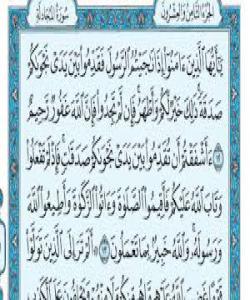 الجزء الثامن والعشرون سورة المجادلة
يَٰٓأَيُّهَا ٱلَّذِينَ ءَامَنُوٓا۟ إِذَا نَٰجَيْتُمُ ٱلرَّسُولَ فَقَدِّمُوا۟ بَيْنَ يَدَىْ نَجْوَىٰكُمْ
صَدَقَةً ذَٰلِكَ خَيْرٌ لَّكُمْ وَأَطْهَرُ فَإِن لَّمْ تَجِدُوا۟ فَإِنَّ ٱللَّهَ غَفُورٌ رَّحِيمٌ
١٢ ءَأَشْفَقْتُمْ أَن تُقَدِّمُوا۟ بَيْنَ يَدَىْ نَجْوَىٰكُمْ صَدَقَٰتٍ فَإِذْ لَمْ تَفْعَلُوا۟
وَتَابَ ٱللَّهُ عَلَيْكُمْ فَأَقِيمُوا۟ ٱلصَّلَوٰةَ وَءَاتُوا۟ ٱلزَّكَوٰةَ وَأَطِيعُوا۟ ٱللَّهَ
وَرَسُولَهُۥ وَٱللَّهُ خَبِيرٌۢ بِمَا تَعْمَلُونَ ١٣ أَلَمْ تَرَ إِلَى ٱلَّذِينَ تَوَلَّوْا۟